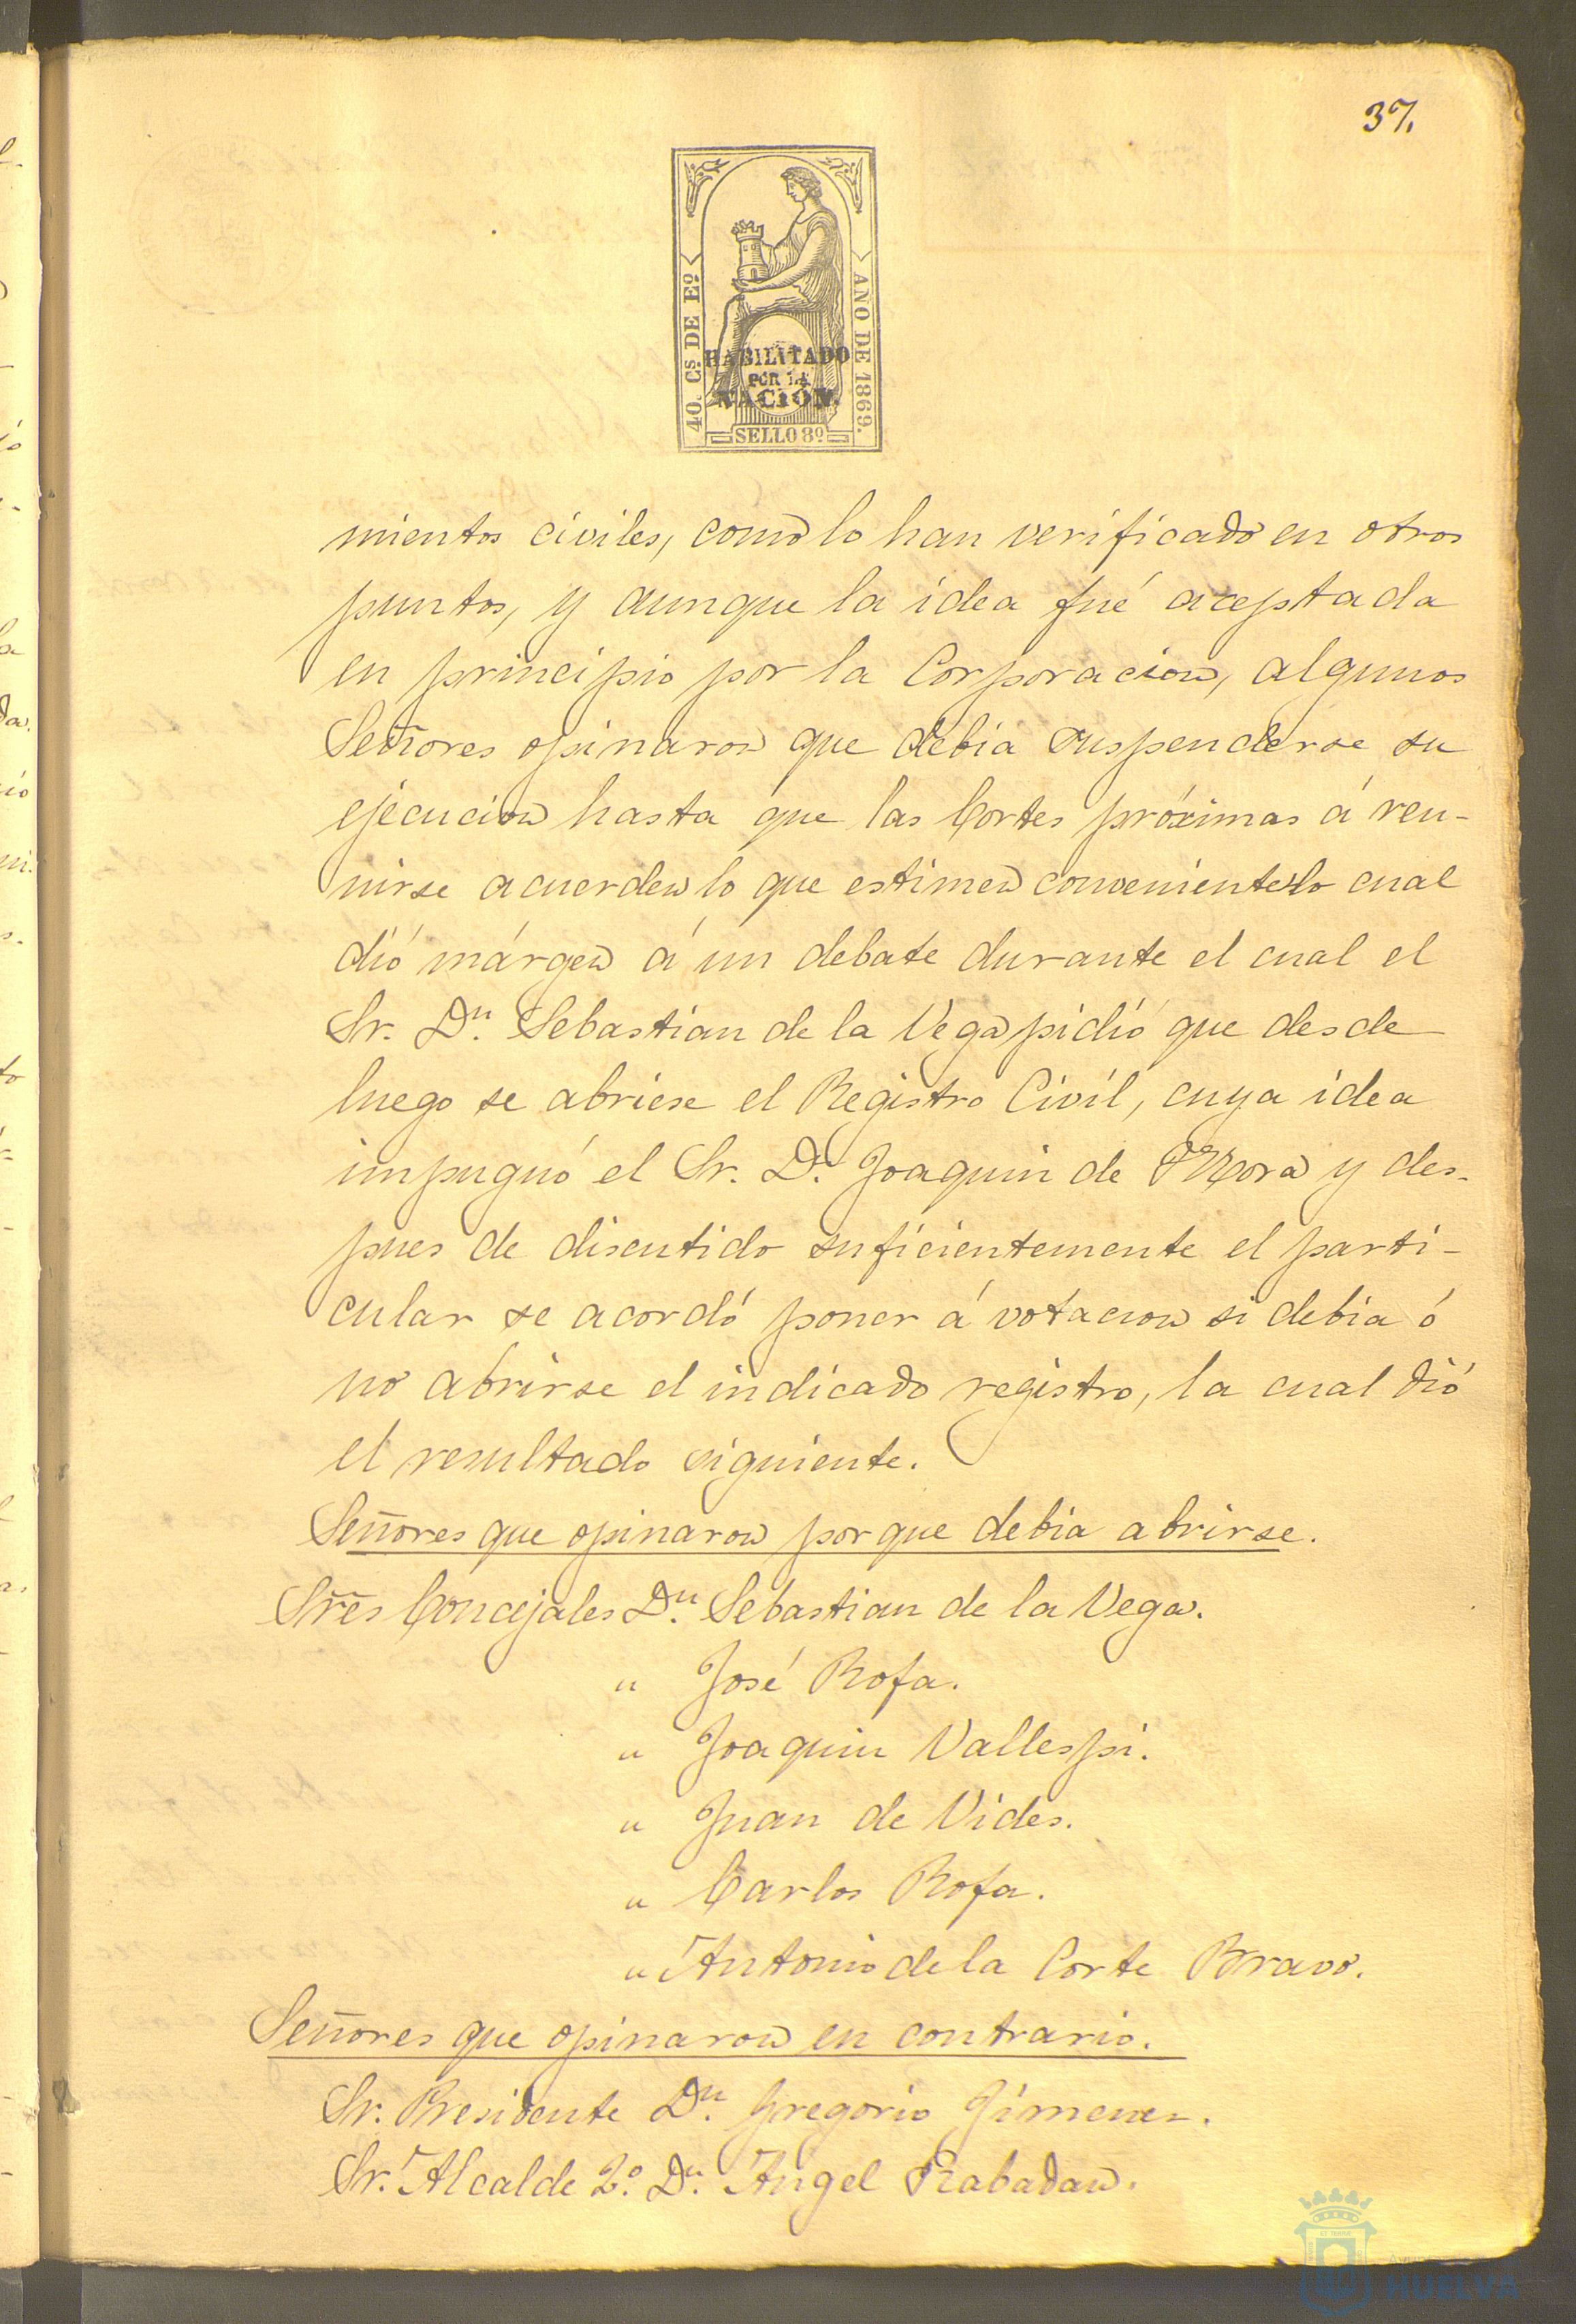 37.
40. Cs. DE Eo.
AÑO DE 1869.
HABILITADO
POR LA
NACION.
SELLO 8º
mientos civiles, como lo han verificado en otros
puntos, y aunque la idea fué aceptada
en principio por la Corporacion, algunos
Señores opinaron que debia suspenderse su
ejecucion hasta que las Cortes próximas á reu-
nirse acuerden lo que estimen conveniente lo cual
dió márgen á un debate durante el cual el
Sr. Dn. Sebastian de la Vega pidió que desde
luego se abriese el Registro Civil, cuya idea
impugnó el Sr. D. Joaquin de Mora y des-
pues de discutido suficientemente el parti-
cular se acordó poner á votacion si debia ó
no abrirse el indicado registro, la cual dió
el resultado siguiente.
Señores que opinaron por que debia abrirse.
Sres Concejales Dn. Sebastian de la Vega.
" José Rofa.
" Joaquin Vallespi.
" Juan de Vides.
" Carlos Rofa.
" Antonio de la Corte Bravo.
Señores que opinaron en contrario.
Sr. Presidente Dn. Gregorio Jimenez.
Sr. Alcalde 2º. Dn. Angel Rabadan.
HUELVA